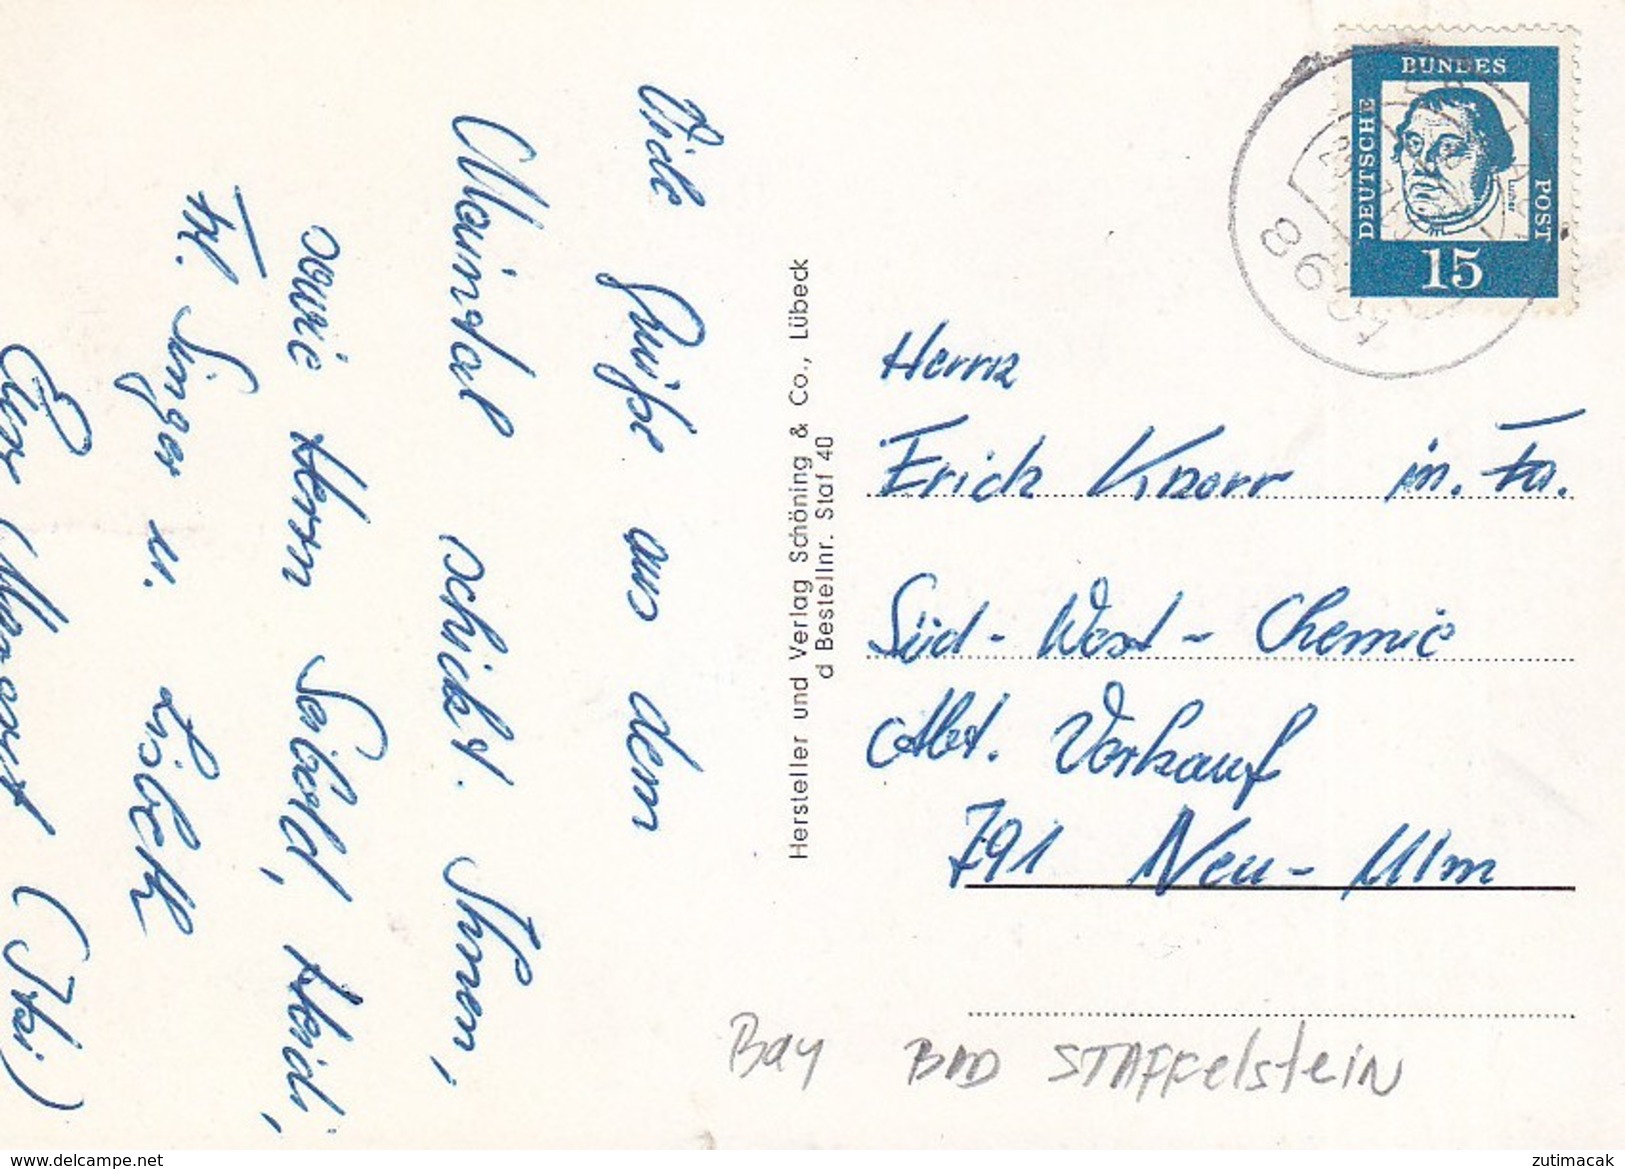 Viele Grüße aus dem
Maintal schickt Ihnen,
sowie Herrn Seibold, Heidi,
Frl. Singer u. Lisbeth
Eure
Hersteller und Verlag Schöning & Co., Lübeck
d Bestellnr. Staf 40
BUNDES
DEUTSCHE
POST
Luther
15
Herrn
Erich Knorr in. Fa.
Süd-West-Chemie
Abt. Verkauf
791 Neu-Ulm
Bay BAD STAFFelsteiN
www.delcampe.net
zutimacak